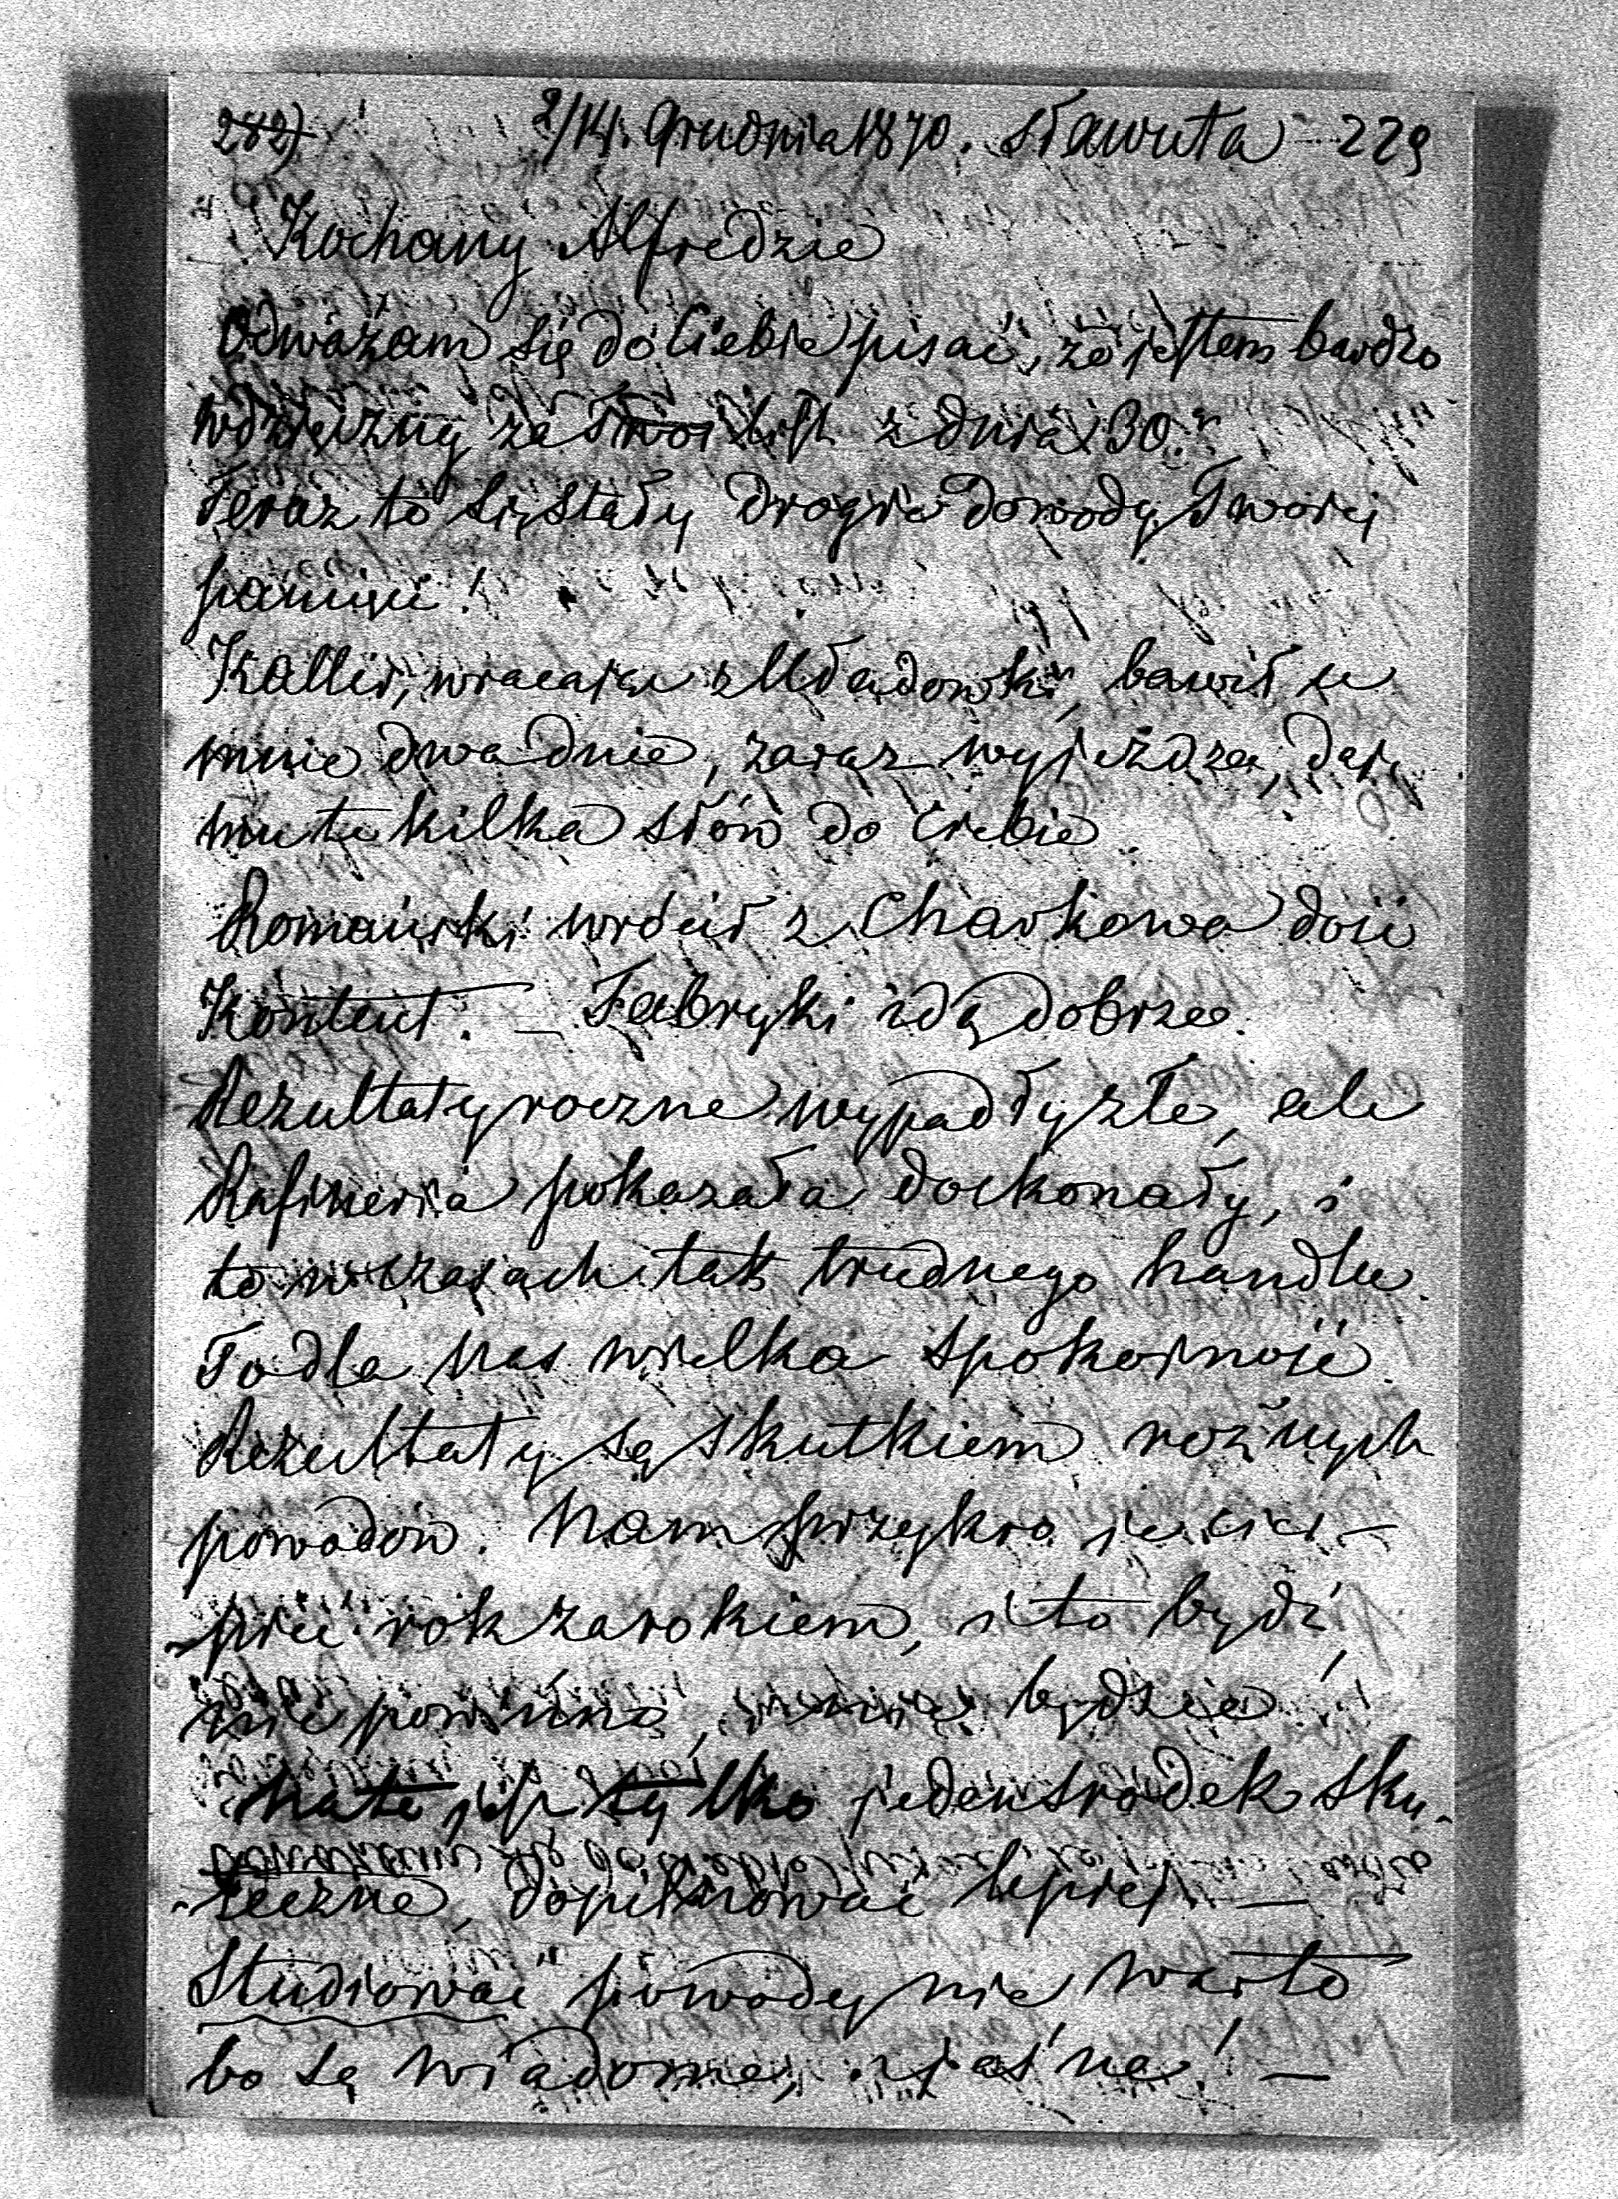 282) 2/14. Grudnia 1870. Sławuta 229
Kochany Alfredzie
Odważam się do Ciebie pisać, że jestem bardzo
wdzięczny za Twój list z dnia 30.
Teraz to się stały drogie dowody Twojej
pamięci!
Kallir, wracając z Uładowki, bawił u
mnie dwa dnie, zaraz wyjeżdża, daję
mu te kilka słów do Ciebie
Romański wrócił z Charkowa dość
Kontent. — Fabryki idą dobrze.
Rezultaty roczne wypadły złe, ale
Rafineria pokazała doskonały, i
to w czasach tak trudnego handlu.
To dla nas wielka spokojność.
Rezultaty są skutkiem rożnych
powodów. Nam przykro je cier-
-pieć rok za rokiem, i to bydź
nie powinno, i nie będzie!
Na to jest tylko jeden środek sku-
-teczne, dopilnować lepiej. —
Studiować powody nie warto
bo są wiadome, i jaśne! —